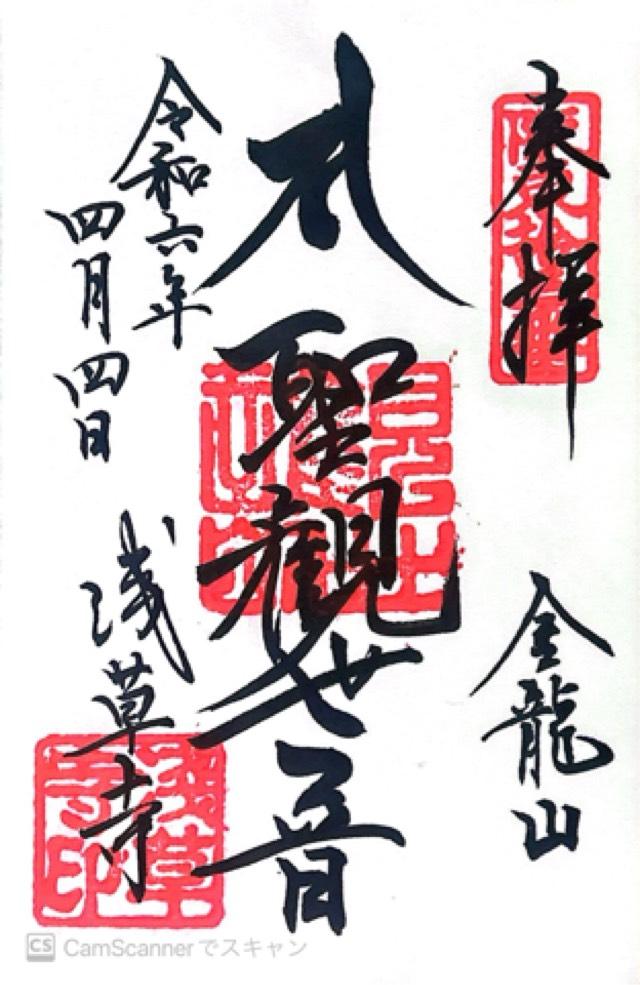 奉拝
金龍山
聖觀世音
令和六年
四月四日
浅草寺
浅草寺印
CS CamScannerでスキャン